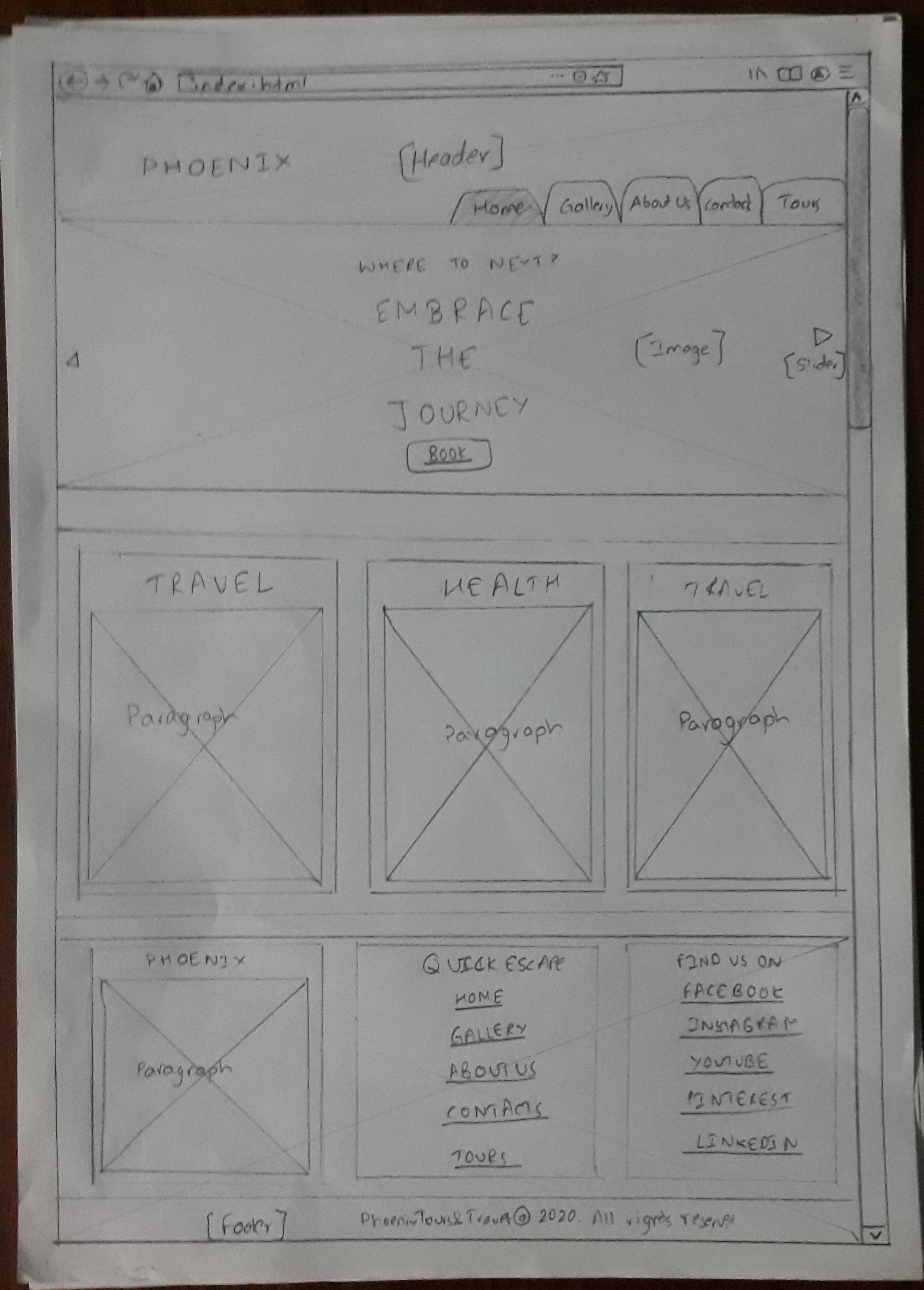 index.html
PHOENIX [Header]
Home Gallery About Us Contact Tours
WHERE TO NEXT?
EMBRACE
THE
JOURNEY
[Image]
[Slider]
BOOK
TRAVEL HEALTH TRAVEL
Paragraph Paragraph Paragraph
PHOENIX
Paragraph
QUICK ESCAPE
HOME
GALLERY
ABOUT US
CONTACTS
TOURS
FIND US ON
FACEBOOK
INSTAGRAM
YOUTUBE
PINTEREST
LINKEDIN
[Footer] PhoenixTours&Travel@ 2020. All rights reserved